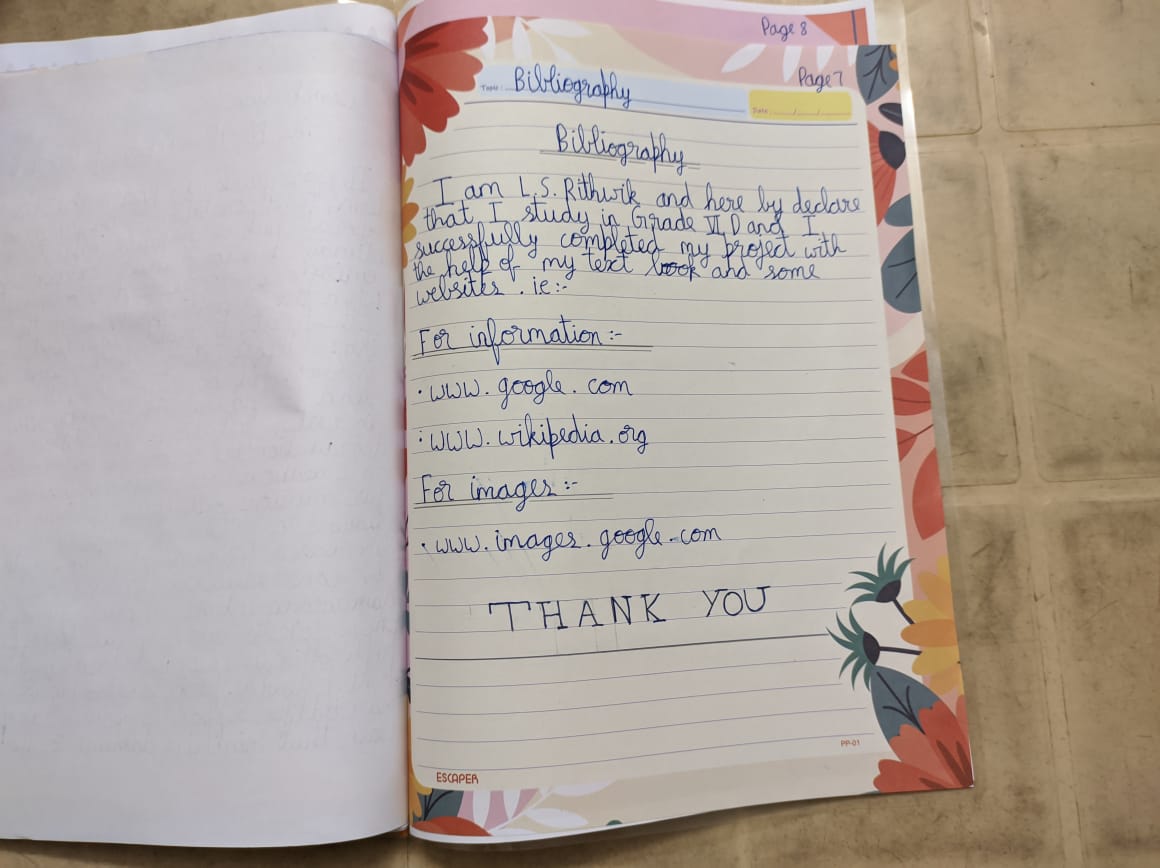 Page 8
Page 7
Topic: Bibliography
Date: / /
Bibliography
I am L.S. Rithwik and here by declare
that I study in Grade VI D and I
successfully completed my project with
the help of my text book and some
websites. ie:-
For information:-
• www.google.com
: www.wikipedia.org
For images:-
• www.images.google.com
THANK YOU
PP-01
ESCAPER